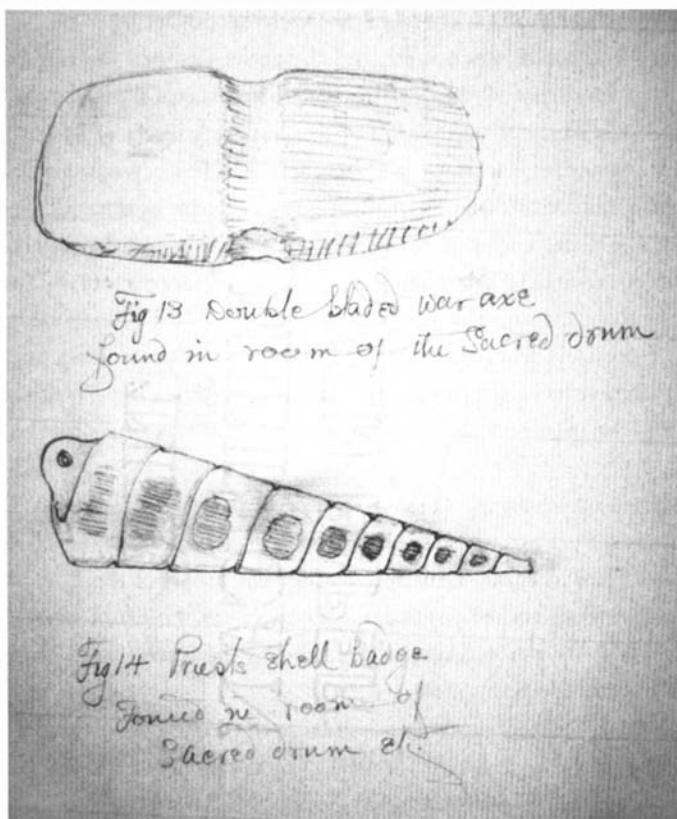 Fig 13 Double bladed war axe
found in room of the Sacred drum
Fig 14 Priests shell badge
Found in room of
Sacred drum etc.